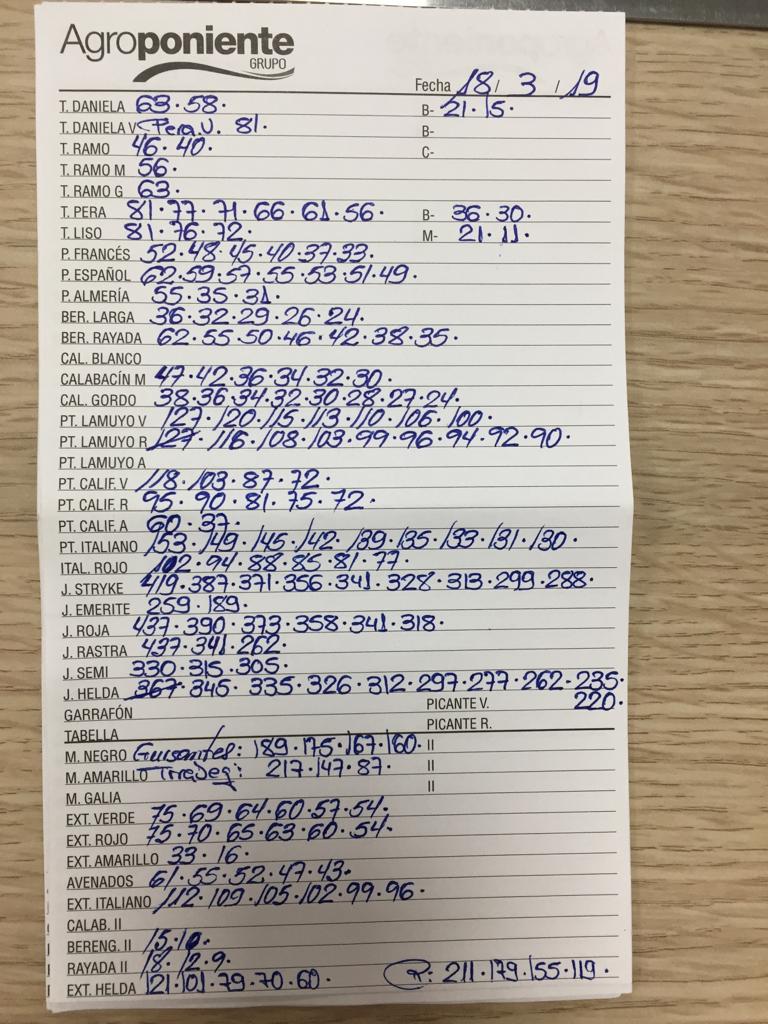 Agroponiente
GRUPO
Fecha 18/ 3 /19
T. DANIELA 63·58· B- 21·15·
T. DANIELA V Pera V. 81· B-
T. RAMO 46·40· C-
T. RAMO M 56·
T. RAMO G 63·
T. PERA 81·77·71·66·61·56· B- 36·30·
T. LISO 81·76·72· M- 21·11·
P. FRANCÉS 52·48·45·40·37·33·
P. ESPAÑOL 62·59·57·55·53·51·49·
P. ALMERÍA 55·35·31·
BER. LARGA 36·32·29·26·24·
BER. RAYADA 62·55·50·46·42·38·35·
CAL. BLANCO
CALABACÍN M 47·42·36·34·32·30·
CAL. GORDO 38·36·34·32·30·28·27·24·
PT. LAMUYO V 127·120·115·113·110·106·100·
PT. LAMUYO R 127·116·108·103·99·96·94·92·90·
PT. LAMUYO A
PT. CALIF. V 118·103·87·72·
PT. CALIF. R 95·90·81·75·72·
PT. CALIF. A 60·37·
PT. ITALIANO 153·149·145·142·139·135·133·131·130·
ITAL. ROJO 102·94·88·85·81·77·
J. STRYKE 419·387·371·356·341·328·313·299·288·
J. EMERITE 259·189·
J. ROJA 437·390·373·358·341·318·
J. RASTRA 437·341·262·
J. SEMI 330·315·305·
J. HELDA 367·345·335·326·312·297·277·262·235·
GARRAFÓN PICANTE V. 220·
TABELLA PICANTE R.
M. NEGRO Guisantes: 189·175·167·160· II
M. AMARILLO 217·147·87· II
M. GALIA II
EXT. VERDE 75·69·64·60·57·54·
EXT. ROJO 75·70·65·63·60·54·
EXT. AMARILLO 33·16·
AVENADOS 61·55·52·47·43·
EXT. ITALIANO 112·109·105·102·99·96·
CALAB. II
BERENG. II 15·10·
RAYADA II 18·12·9·
EXT. HELDA 121·101·79·70·60· R: 211·179·155·119·